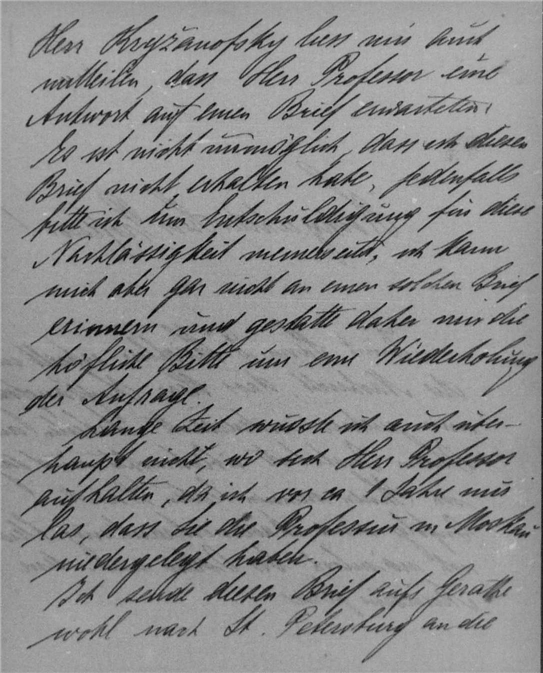 Herr Kryžanofsky liess mir auch
mitteilen, dass Herr Professor eine
Antwort auf einen Brief erwarteten.
Es ist nicht unmöglich, dass ich diesen
Brief nicht erhalten habe, jedenfalls
bitte ich um Entschuldigung für diese
Nachlässigkeit meinerseits, ich kann
mich aber gar nicht an einen solchen Brief
erinnern und gestatte daher mir die
höfliche Bitte um eine Wiederholung
der Anfrage.
Lange Zeit wusste ich auch über-
haupt nicht, wo sich Herr Professor
aufhalten, da ich vor ca 1 Jahre
las, dass Sie die Professur in Moskau
niedergelegt haben.
Ich sende diesen Brief aufs Gerathe
wohl nach St. Petersburg an die